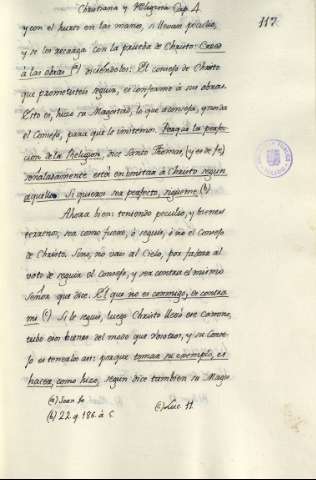 Christiana y Religiosa Cap. 4.
117.
y con el hurto en las manos, si llevan peculio,
y se les recarga con la prueba de Christo: Creed
à las obras (a) diciendoles: El consejo de Christo
que prometisteis seguir, es conforme à sus obras.
Esto es, hizo su Magestad, lo que aconseja, y manda
el Consejo, para que lo imitemos. Porque la perfec-
cion de la Religion, dice Santo Thomas, (y es de fe)
señaladamente està en imitar à Christo segun
aquello: Si quieres ser perfecto, sigueme. (b)
Ahora bien: teniendo peculio, y bienes
externos, sea como fuere, ò seguis, ò no el Consejo
de Christo. Si no, no vais al Cielo, por faltar al
voto de seguir el Consejo, y ser contra el mismo
Señor que dice: El que no es conmigo, es contra
mi (c). Si le seguis, luego Christo llevò ese camino,
tubo esos bienes del modo que vosotros, y su Conse-
jo es tenerlos asi: porque tomar su exemplo, es
hacer, como hizo, segun dice tambien su Mages-
(a) Joan 10
(b) 22. q. 186. à 5
(c) Luc. 11.